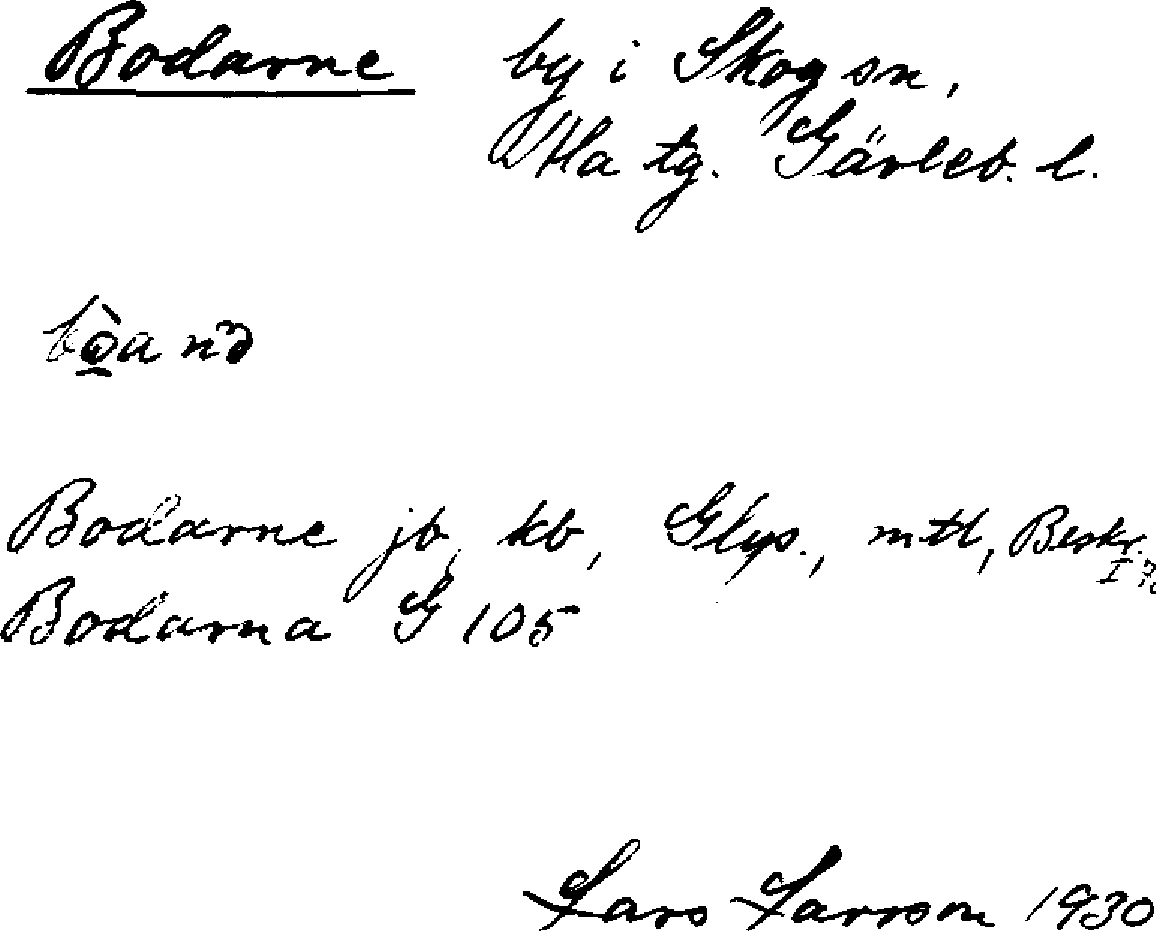 Bodarne by i Skog sn,
Ala tg. Gävleb. l.
Bodarne jb, kb, Glys., mtl, Beskr.
I
Bodarna G 105
Lars Larsson 1930